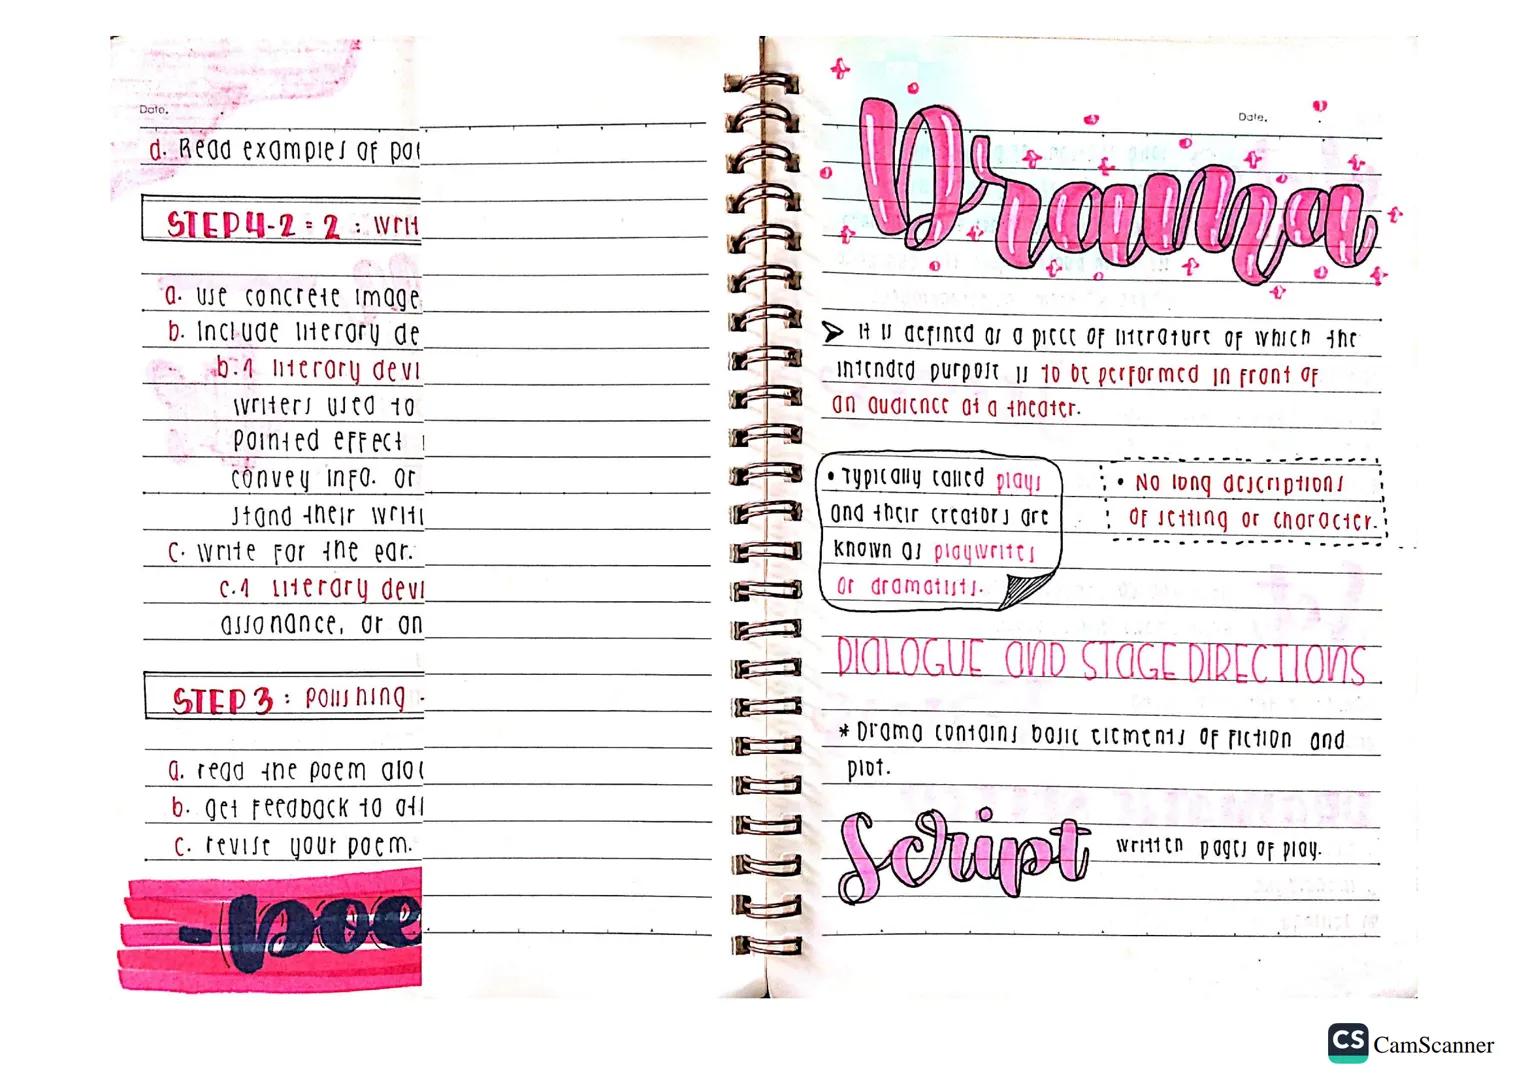 Date.
d. Read examples of
STEP 4-2 = 2 : writ
a. use concrete image
b. Include literary de
b.1 literary devi
writers used to
pointed effect
convey info. or
stand their writi
c. write for the ear.
c.1 Literary devi
assonance, or an
STEP 3 : polishing -
a. read the poem alo
b. get feedback to
c. revise your poem.
- poe
Date.
Drama
It is defined as a piece of literature of which the
intended purpose is to be performed in front of
an audience at a theater.
• Typically called plays
and their creators are
known as playwrites
or dramatists.
• No long descriptions
of setting or character.
DIALOGUE AND STAGE DIRECTIONS
* Drama contains basic elements of fiction and
plot.
Script written pages of play.
CS CamScanner